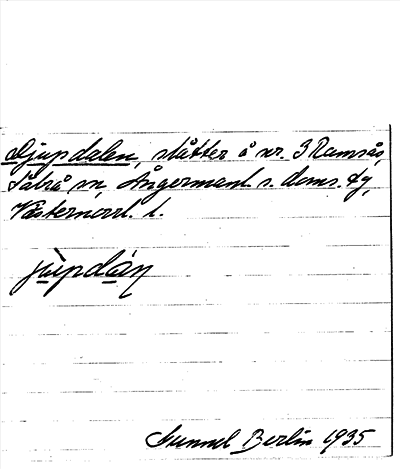 Djupdalen, slåtter å nr. 3 Ramsås,
Säbrå sn, Ångermanl. s. doms. tg,
Västernorrl. l.
jùpdán
Gunnel Berlin 1935